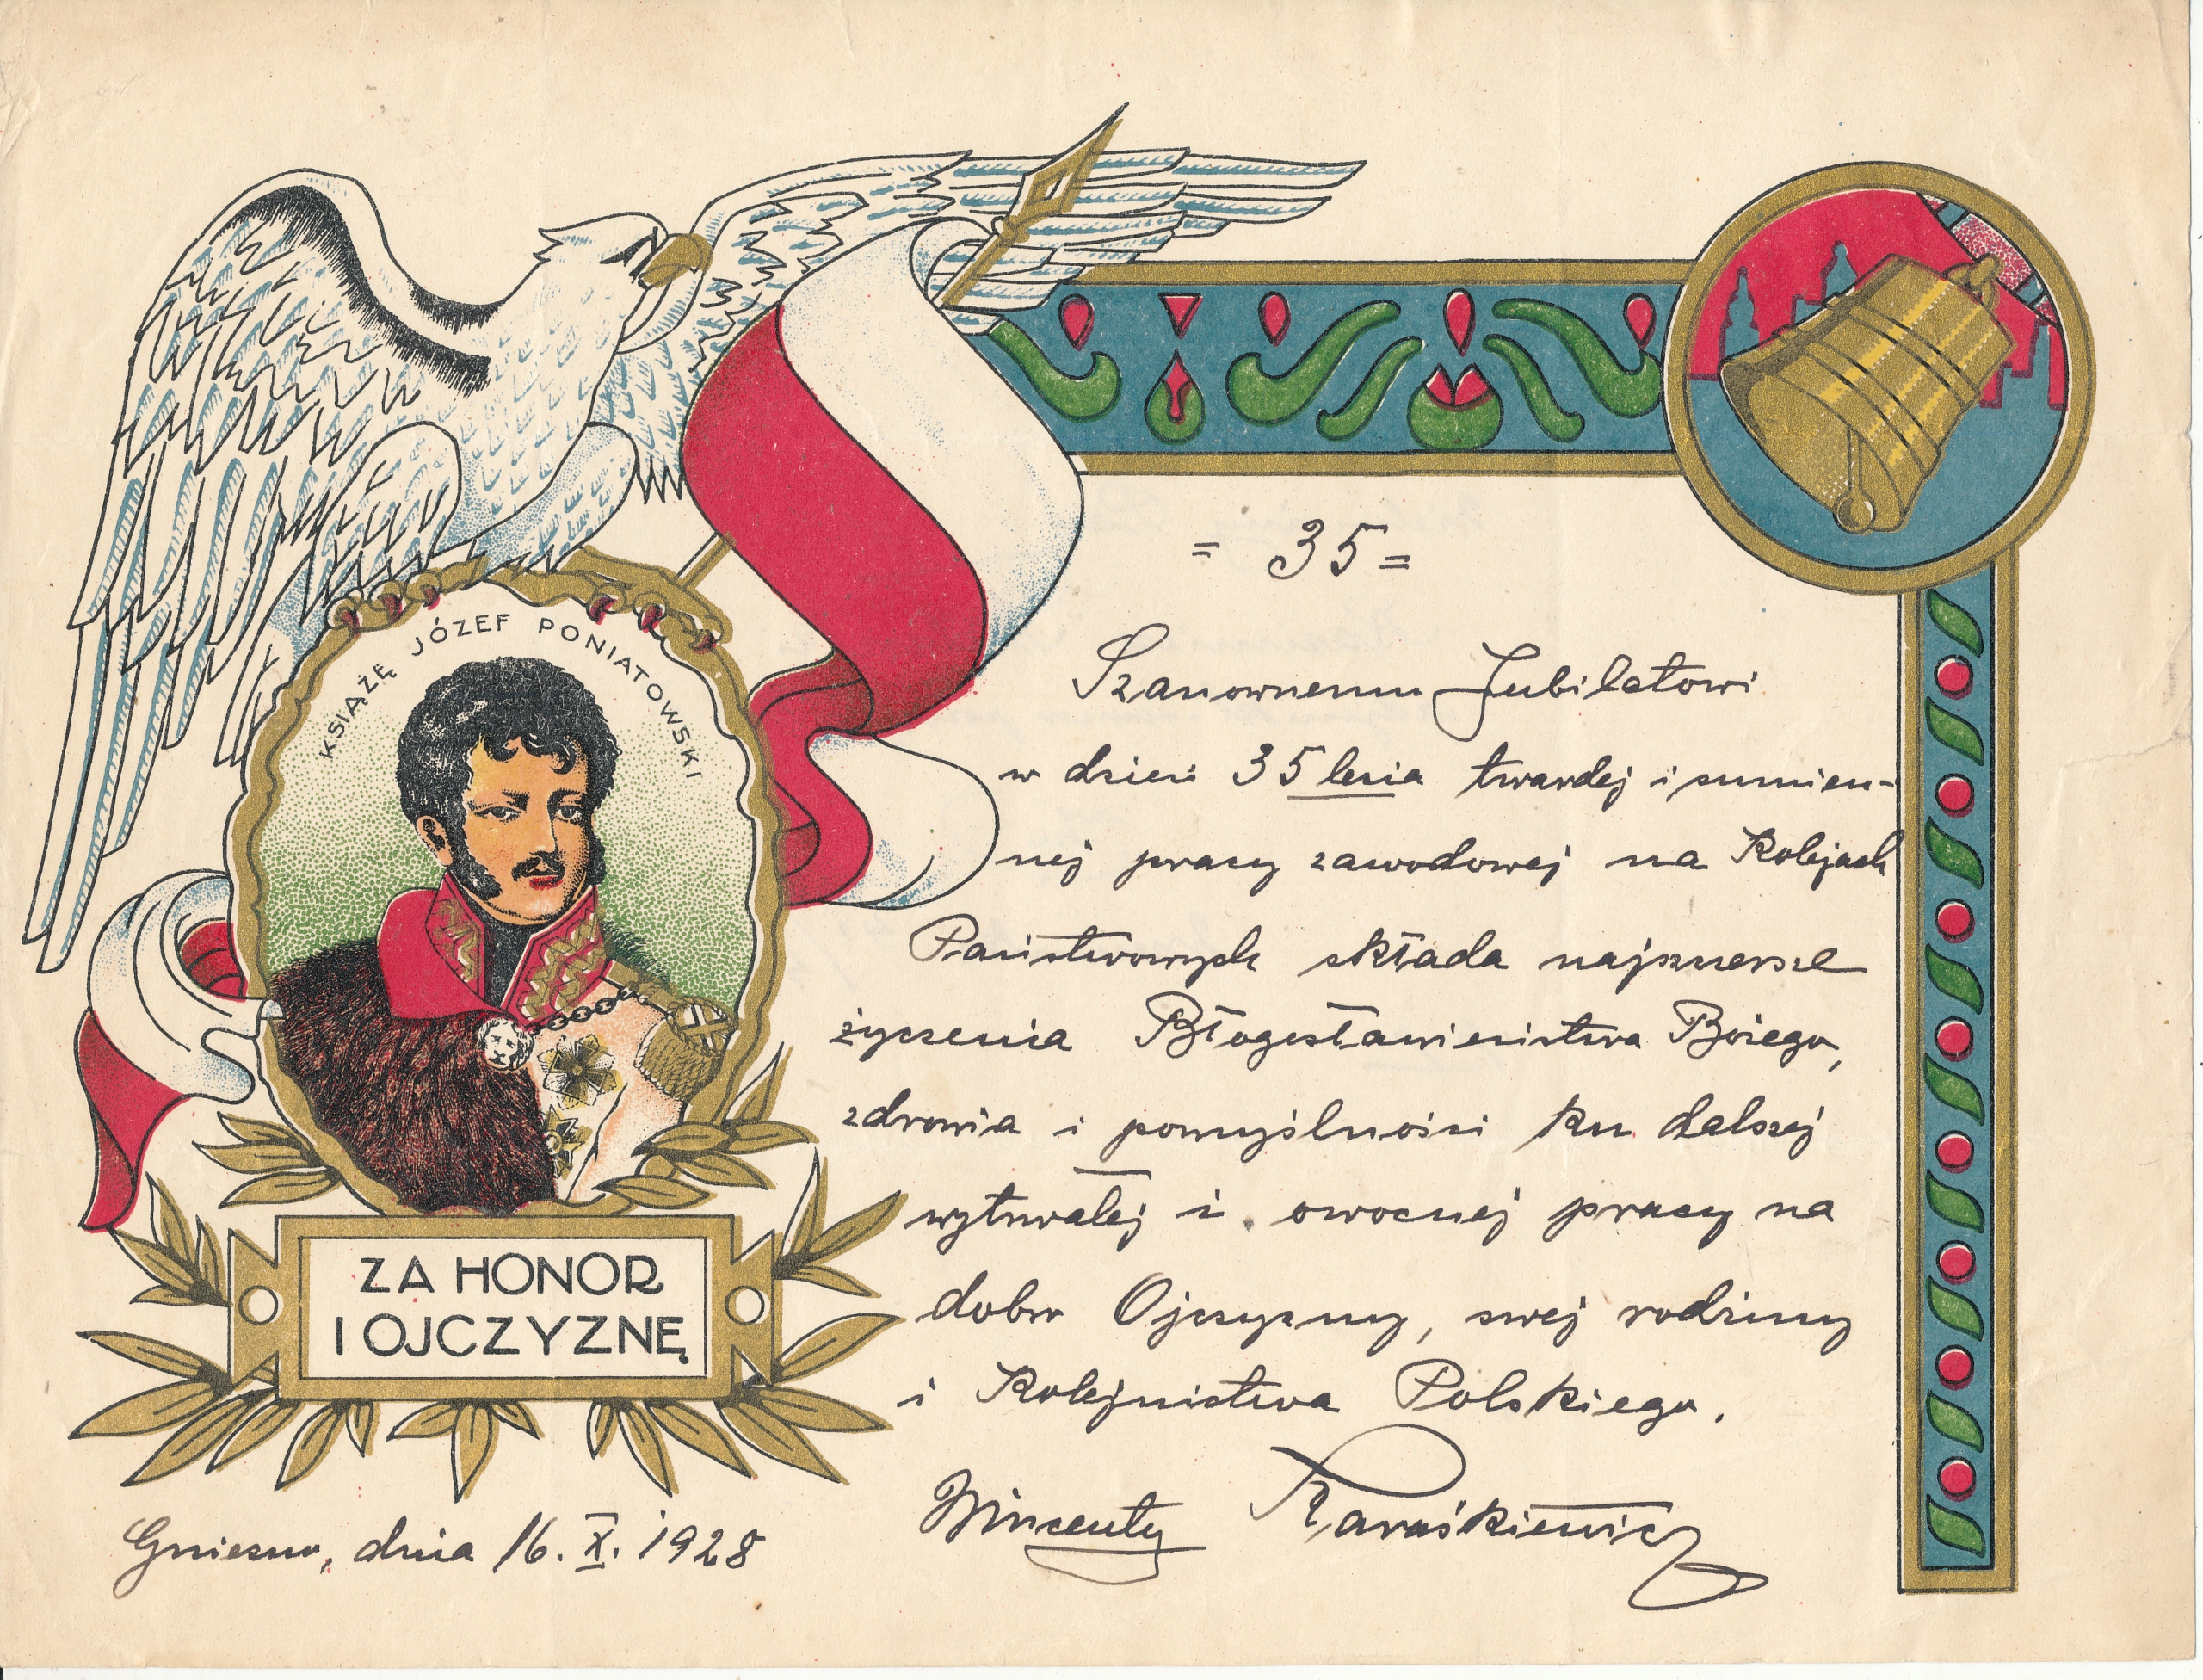 KSIĄŻĘ JÓZEF PONIATOWSKI
ZA HONOR
I OJCZYZNĘ
= 35 =
Szanownemu Jubilatowi
w dzień 35 lecia twardej i sumien-
nej pracy zawodowej na Kolejach
Państwowych składa najszczersze
życzenia Błogosławieństwa Bożego,
zdrowia i pomyślności ku dalszej
wytrwałej i owocnej pracy na
dobro Ojczyzny, swej rodziny
i Kolejnictwa Polskiego.
Wincenty Karaśkiewicz
Gniezno, dnia 16. X. 1928